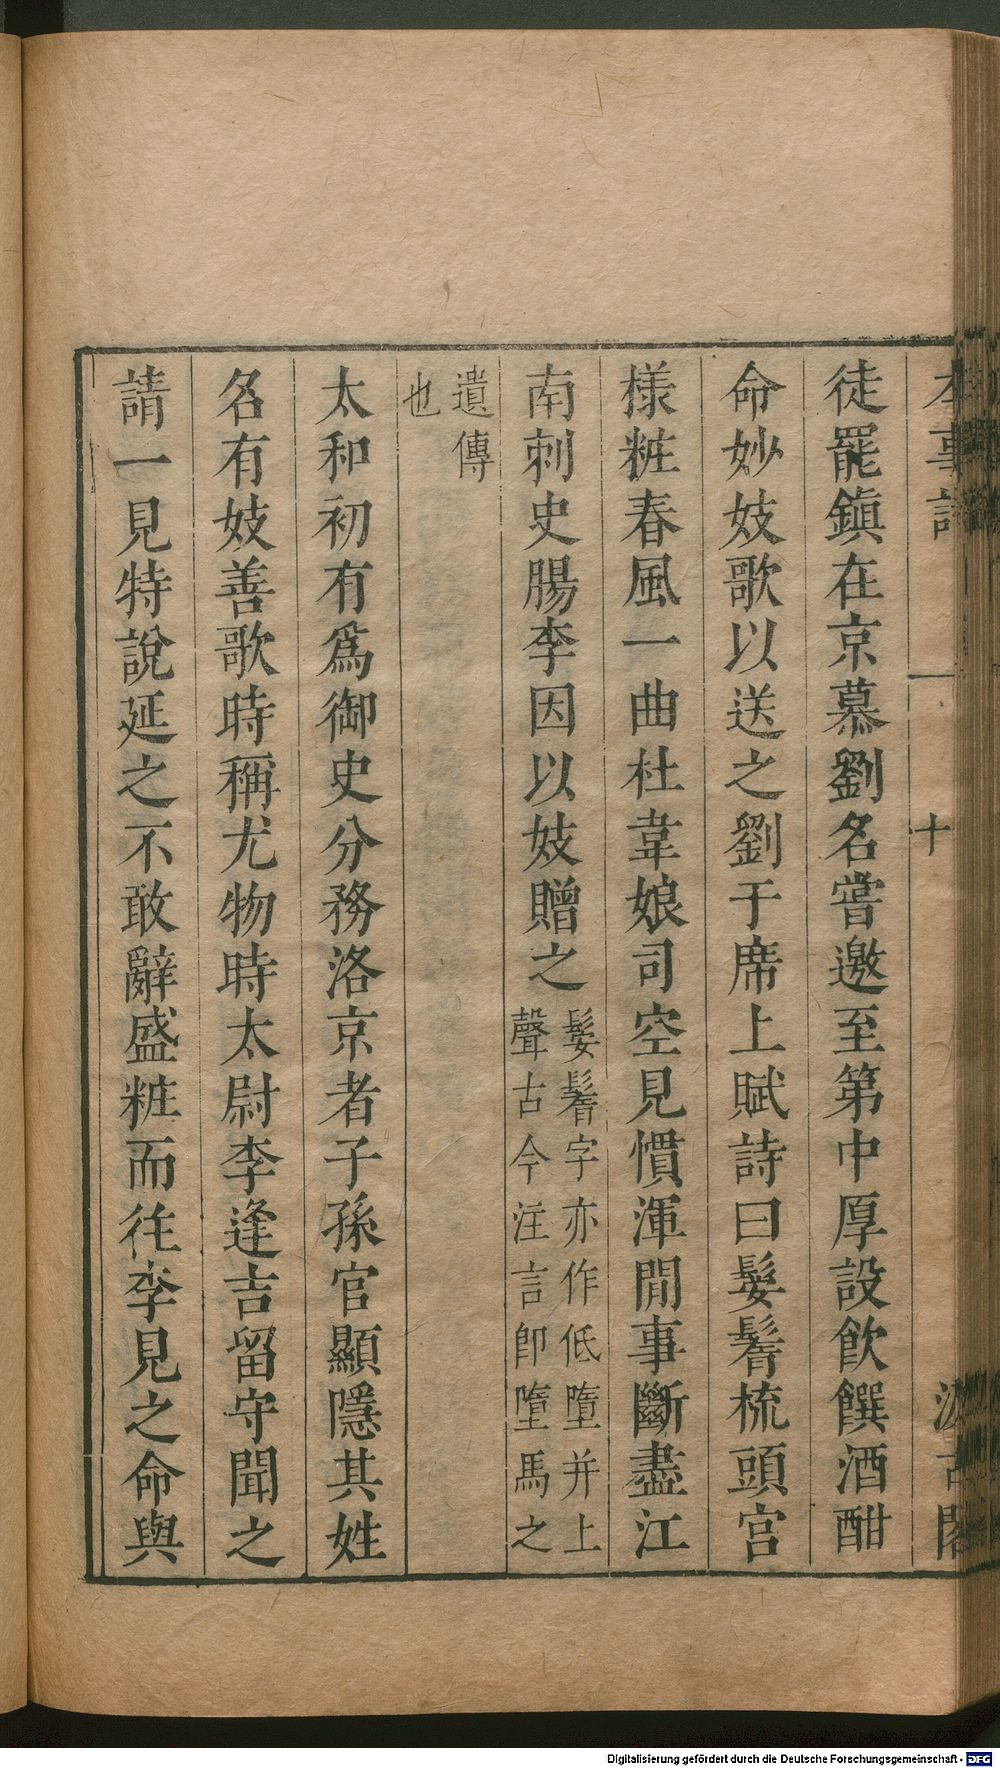 本事詩 一 十 汲古閣
徒罷鎮在京慕劉名嘗邀至第中厚設飲饌酒酣
命妙妓歌以送之劉于席上賦詩曰髲鬌梳頭宮
樣粧春風一曲杜韋娘司空見慣渾閒事斷盡江
南刺史腸李因以妓贈之
髲鬌字亦作低墮并上
聲古今注言卽墮馬之
遺傳
也
太和初有爲御史分務洛京者子孫官顯隱其姓
名有妓善歌時稱尤物時太尉李逢吉留守聞之
請一見特說延之不敢辭盛粧而徃李見之命與
Digitalisierung gefördert durch die Deutsche Forschungsgemeinschaft - DFG